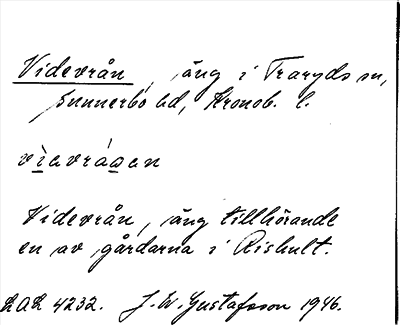 Videvrån, äng i Traryds sn,
Sunnerbo hd, Kronob. l.
vìdevrá̀gan
Videvrån, äng tillhörande
en av gårdarna i Rishult.
LAL 4232. J. W. Gustafsson 1946.